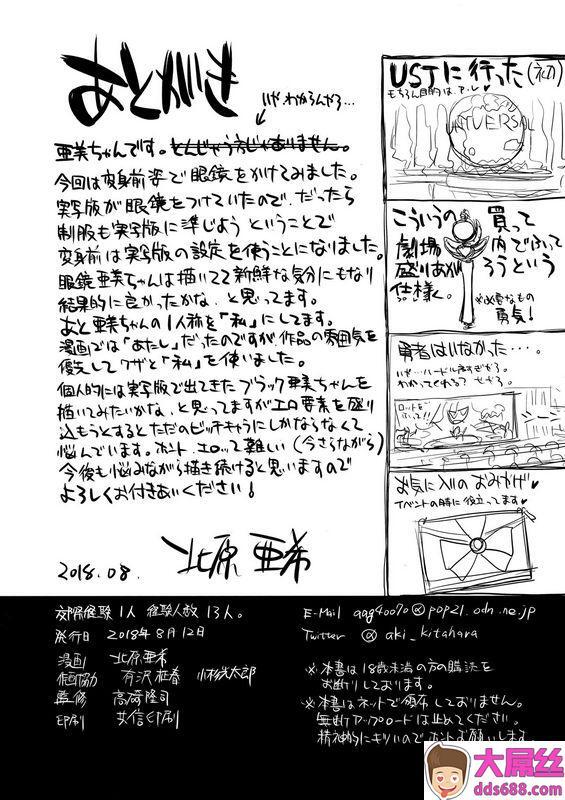 あとがき
いや、わかるんやろ…
亜美ちゃんです。
今回は変身前姿で眼鏡をかけてみました。
実写版が眼鏡をつけていたので、だったら
制服も実写版に準じよう ということで
変身前は実写版の設定を使うことになりました。
眼鏡亜美ちゃんは描いてて新鮮な気分にもなり
結果的に良かったかな、と思ってます。
あと亜美ちゃんの1人称を「私」にしてます。
漫画では「あたし」だったのですが、作品の雰囲気を
優先してワザと「私」を使いました。
個人的には実写版で出てきたブラック亜美ちゃんを
描いてみたいかな、と思ってますがエロ要素を盛り
込もうとするとただのビッチキャラにしかならなくて
悩んでいます。ホント、エロって難しい(今さらながら)
今後も悩みながら描き続けると思いますので
よろしくお付きあいください!
2018.08.
北原亜希
USJに行った(初)
もちろん目的は
UNIVERSAL
こういうの買って
劇場内でふって
盛りあがろうという
仕様。
※必要なもの
勇気!
勇者はいなかった…。
いや…ハードル高すぎやろ。
わかってくれる?
ロッドを
シーン
お気に入りのおみやげ♥
イベントの時に役立ってます♥
経験人数13人。
発行日 2018年8月12日
漫画 北原亜希
企画協力 有沢 小林浩太郎
監修 高崎隆司
印刷 共信印刷
E-Mail aag40070@pop21.odn.ne.jp
Twitter @aki_kitahara
※本書は18歳未満の方の購読を
お断りしております。
※本書はネットで頒布しておりません。
無断アップロードは止めてください。
精神的にキツいのでホントお願いします。
大屌丝
dds688.com